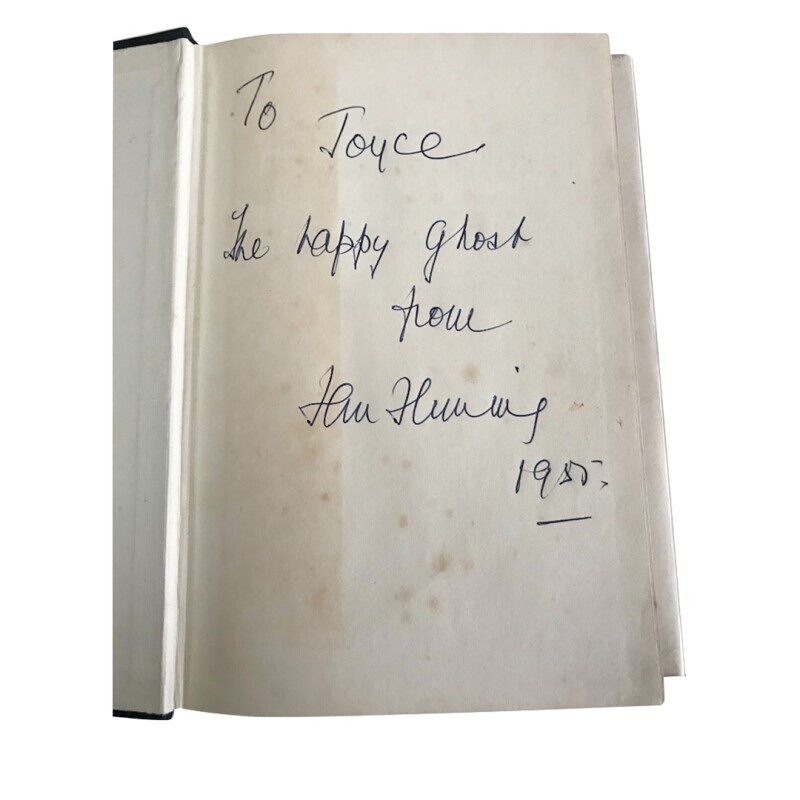 To
Joyce
The happy Ghost
from
Ian Fleming
1955.